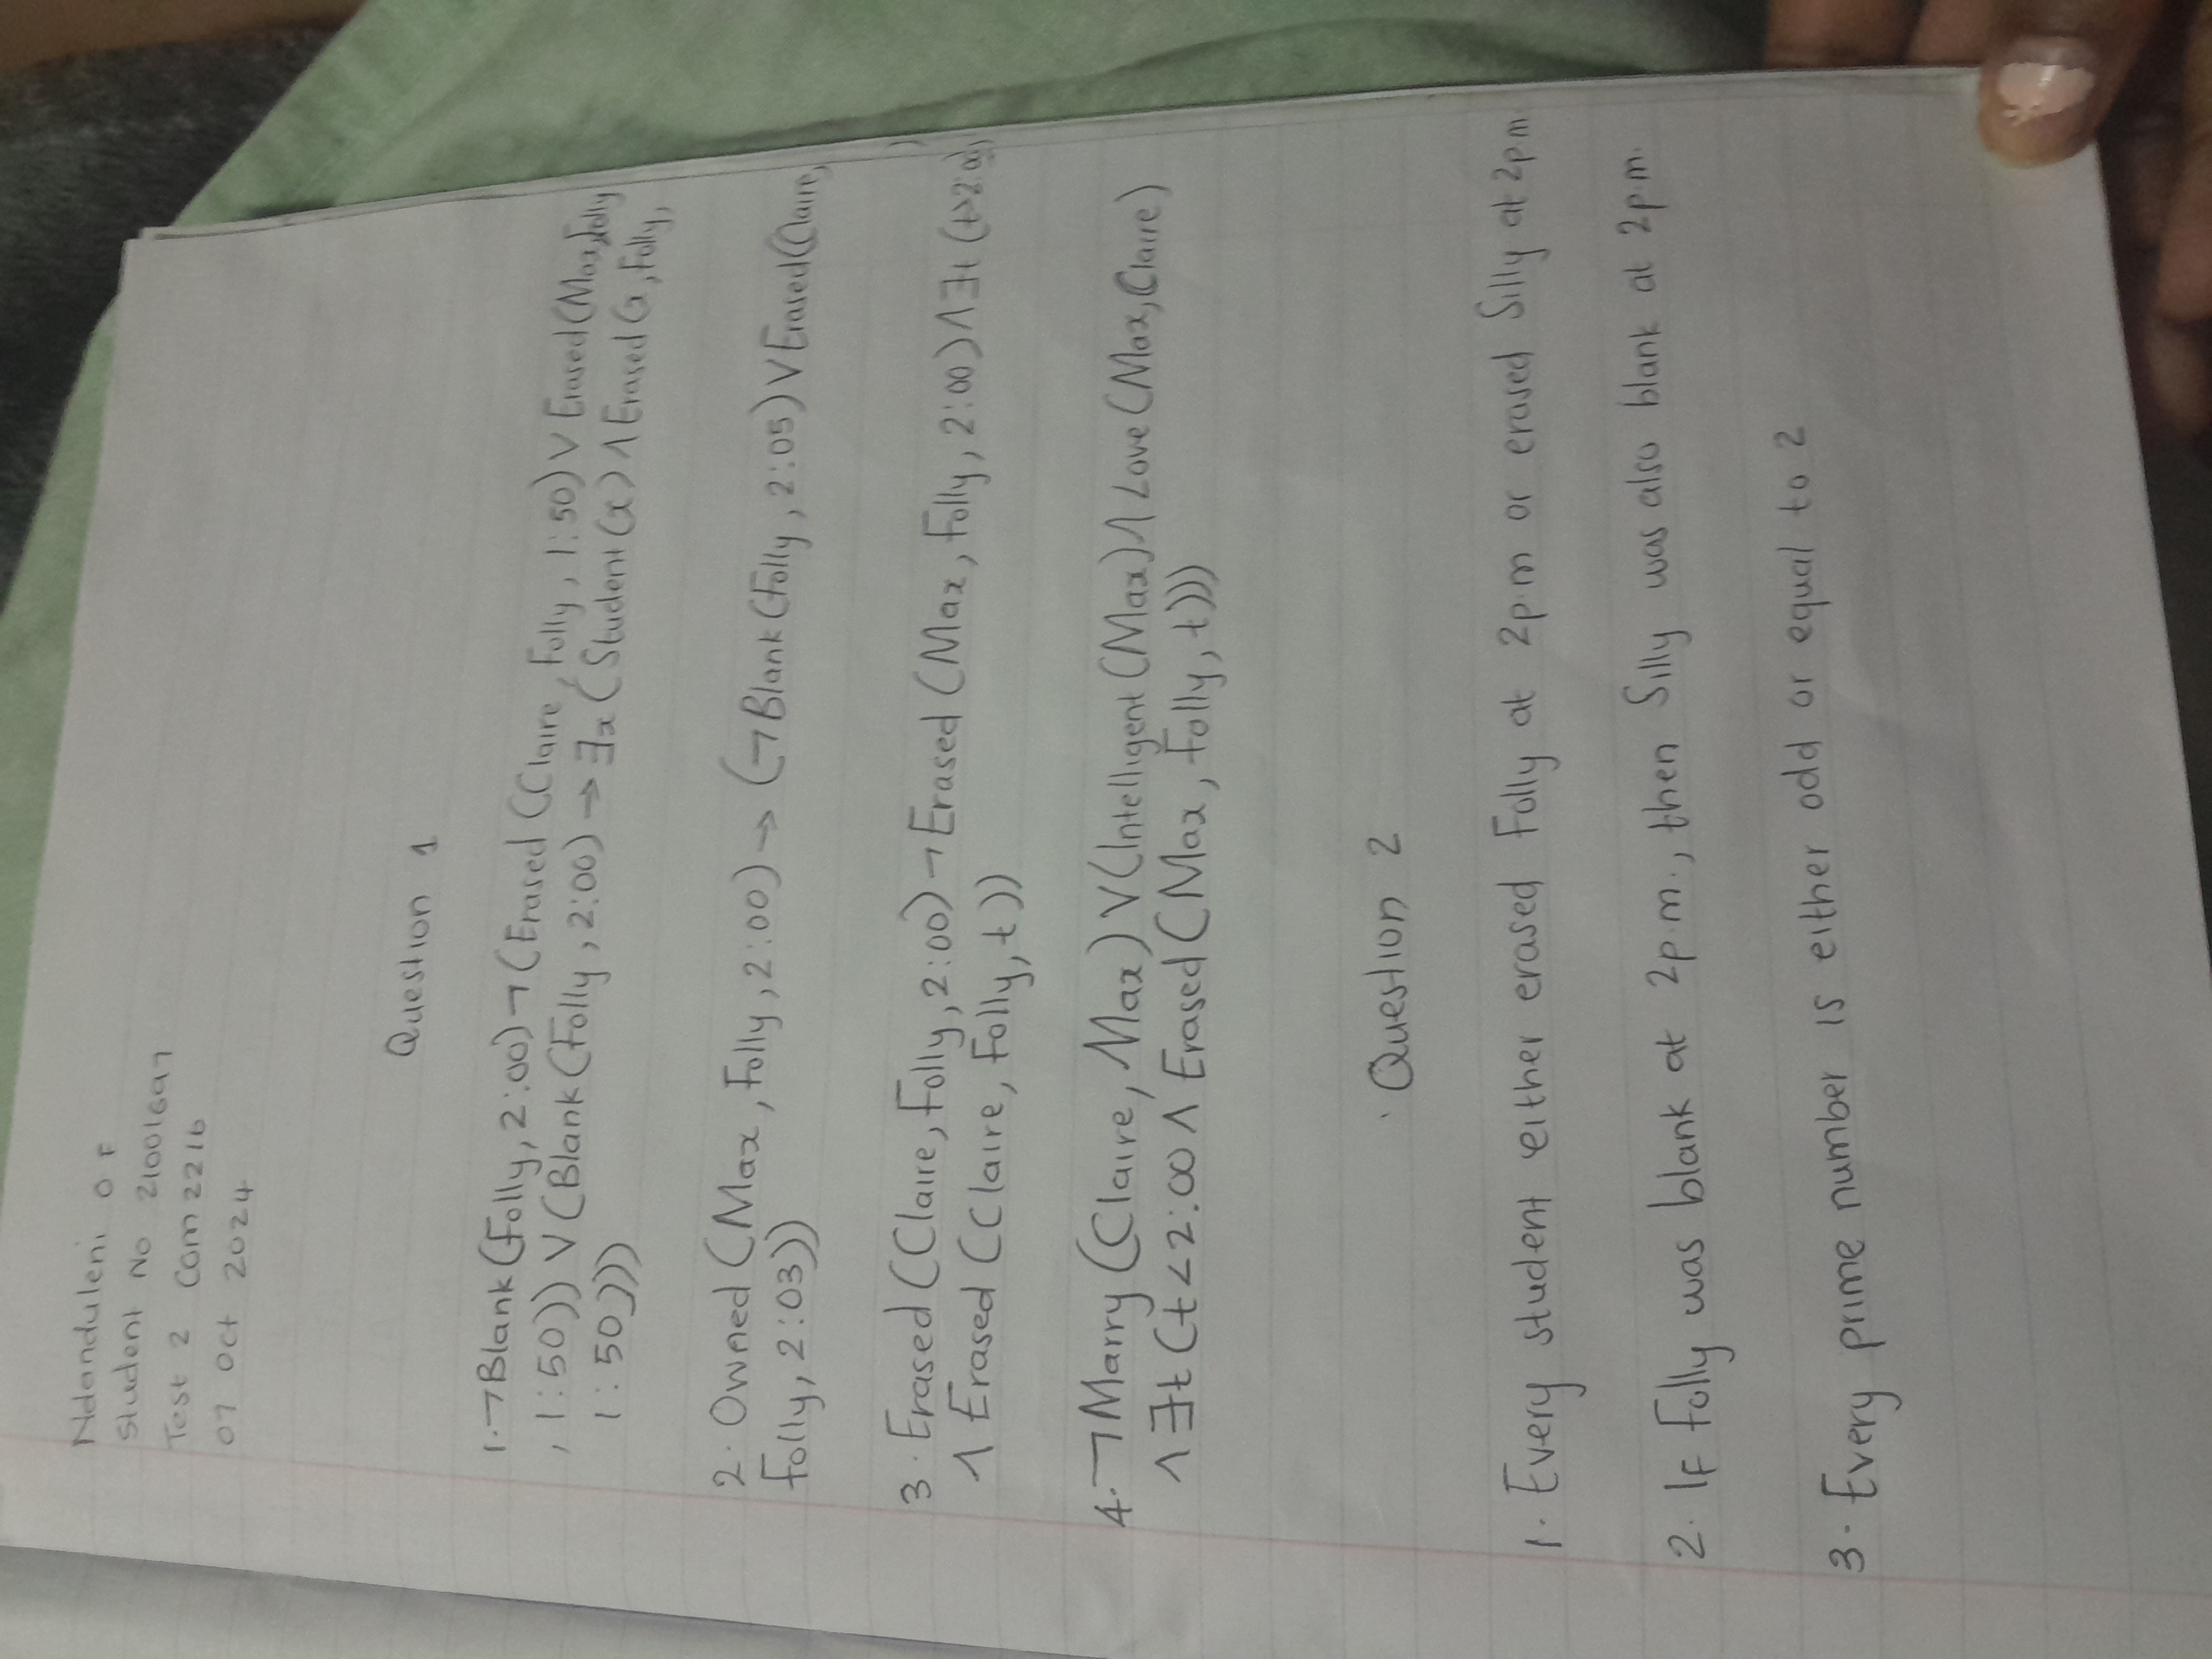 Ndanduleni O F
Student No 21001697
Test 2 Com 2216
07 Oct 2024
Question 1
1. ¬Blank(Folly, 2:00) ¬ (Erased (Claire, Folly, 1:50) ∨ Erased(Max, Folly
, 1:50)) ∨ (Blank(Folly, 2:00) → ∃x (Student(x) ∧ Erased(x, Folly,
1:50)))
2. Owned (Max, Folly, 2:00) → (¬Blank(Folly, 2:05) ∨ Erased(Claire,
Folly, 2:03))
3. Erased (Claire, Folly, 2:00) ¬ Erased (Max, Folly, 2:00) ∧ ∃t (t>2:00)
∧ Erased (Claire, Folly, t))
4. ¬Marry (Claire, Max) ∨ (Intelligent (Max) ∧ Love (Max, Claire)
∧ ∃t (t<2:00 ∧ Erased (Max, Folly, t)))
Question 2
1. Every student either erased Folly at 2p.m or erased Silly at 2p.m
2. If Folly was blank at 2p.m., then Silly was also blank at 2p.m.
3. Every prime number is either odd or equal to 2